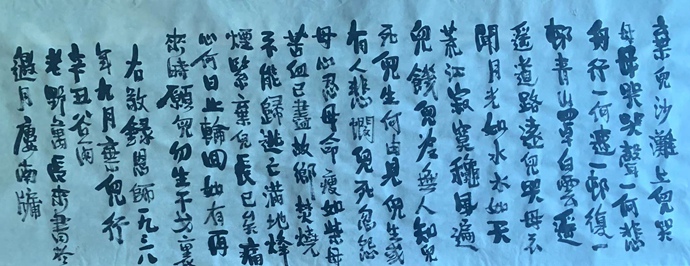 棄兒沙灘上兒哭
母母哭哭聲一何悲
身行一何遠一邨復一
邨青山罩白雲遥
遥道路遠兒哭母不
聞月光如水水如天
荒江寂寞穐風遍
兒饑兒 無人知兒
死兒生何由見兒生或
有人悲憫兒死忽怨
母心忍母命瘦如柴母
苦血已盡故鄉焚燒
不能歸逃亡滿地烽
煙緊棄兒長已矣痛
心何日止輪回如有再
來時願兒勿生干戈裏
右敬録恩師一九三八
年九月棄兒行
辛丑谷雨
老野萬長來書於
邀月廬南牖